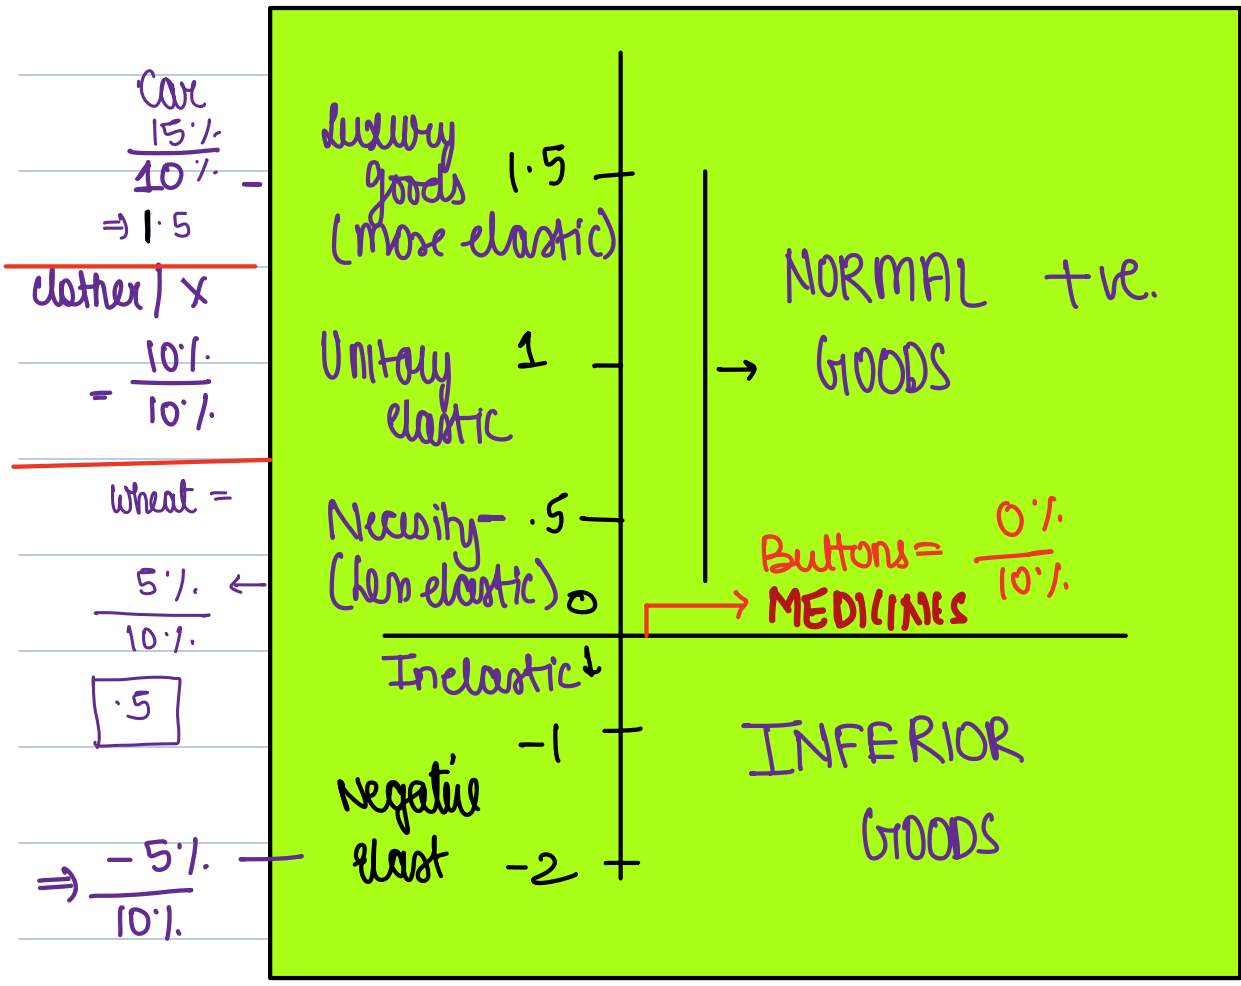 Car
15%
10% -
⇒ 1.5
clother / X
= 10%
10%
Wheat =
5% ←
10%
.5
⇒ -5%
10%
Luxury
goods 1.5
(more elastic)
Unitary 1
elastic
Necesity - .5
(Less elastic) 0
Inelastic ↓
-1
Negative
elast -2
NORMAL +ve.
→ GOODS
Buttons = 0%
10%
MEDICINES
INFERIOR
GOODS